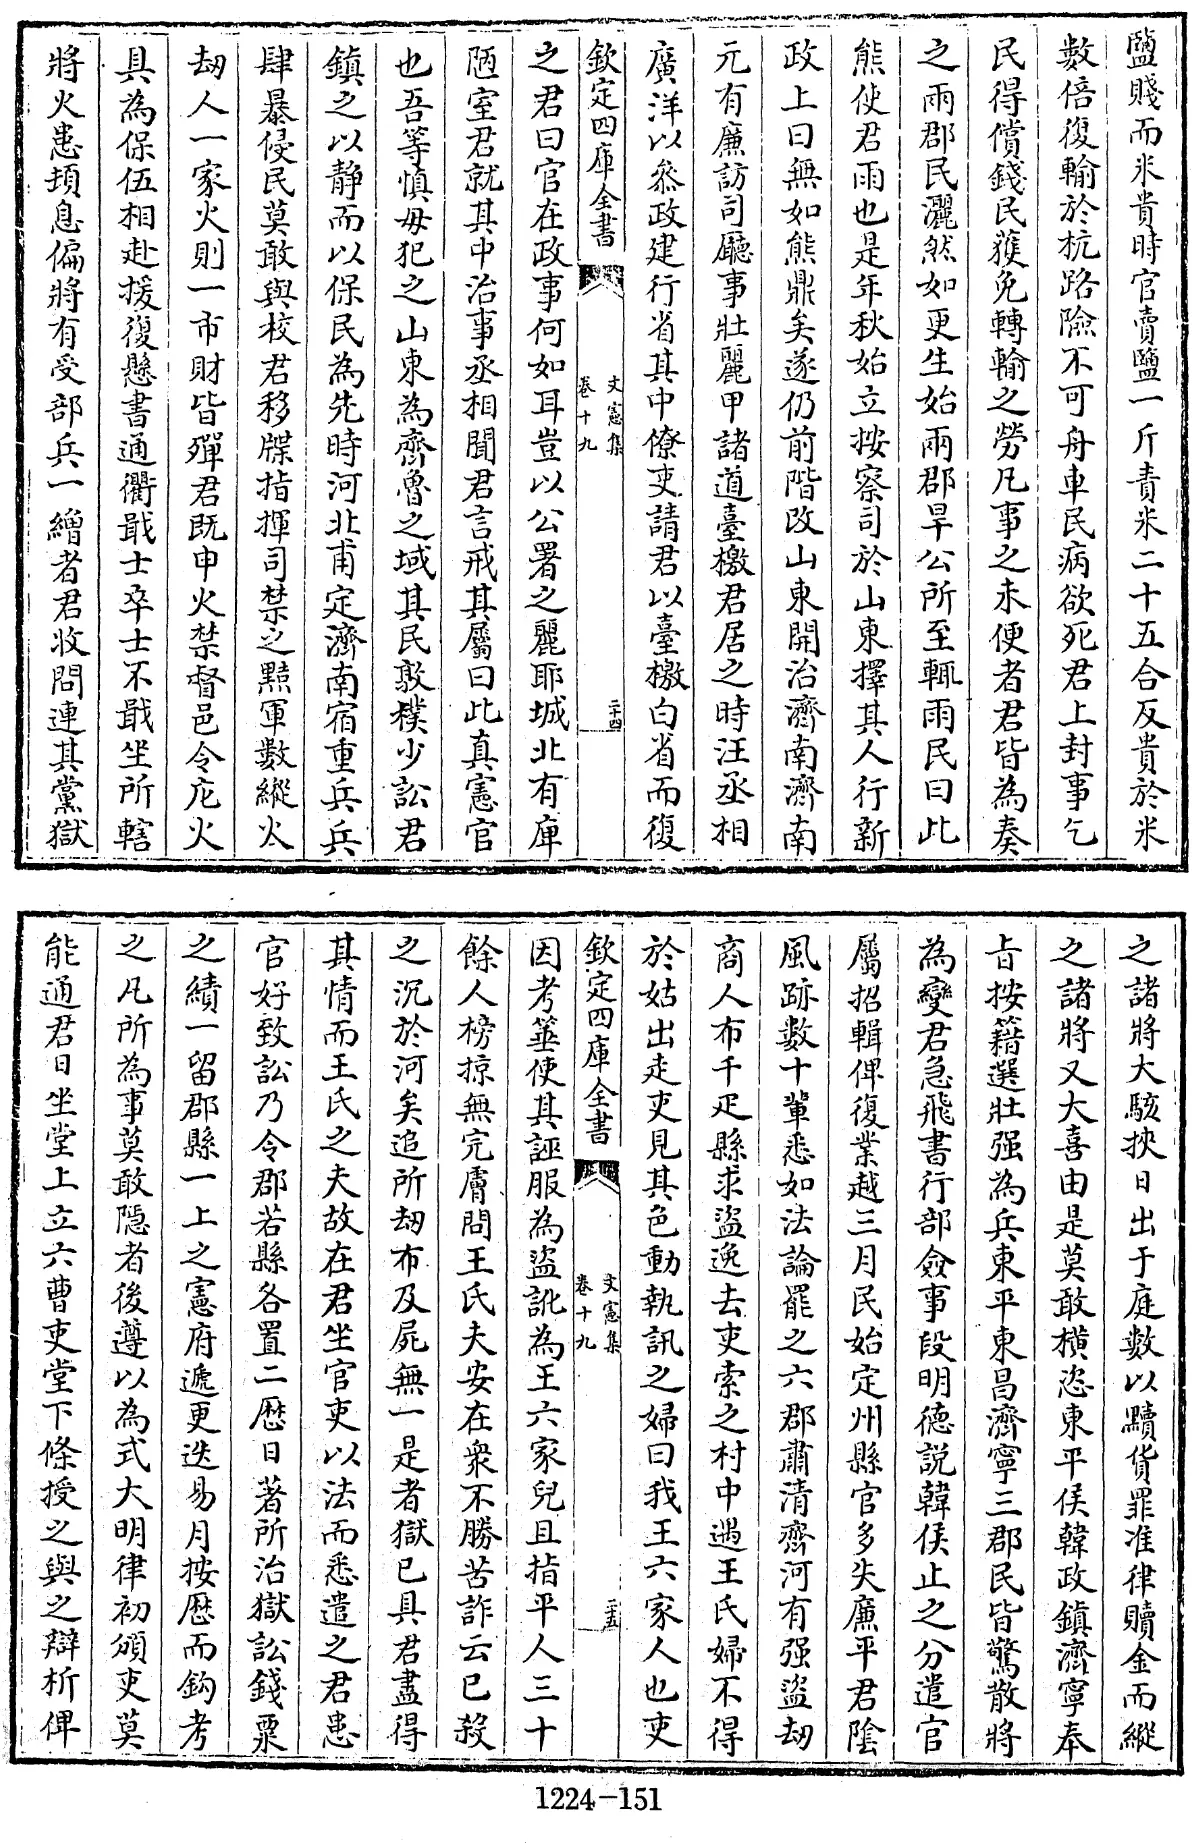 鹽賤而米貴時官賣鹽一斤責米二十五合反貴於米
數倍復輸於杭路險不可舟車民病欲死君上封事乞
民得償錢民獲免轉輸之勞凡事之未便者君皆為奏
之兩郡民灑然如更生始兩郡旱公所至輒雨民曰此
熊使君雨也是年秋始立按察司於山東擇其人行新
政上曰無如熊鼎矣遂仍前階改山東開治濟南濟南
元有廉訪司廳事壯麗甲諸道臺檄君居之時汪丞相
廣洋以叅政建行省其中僚吏請君以臺檄白省而復
欽定四庫全書
文憲集
卷十九
二十四
之君曰官在政事何如耳豈以公署之麗耶城北有庫
陋室君就其中治事丞相聞君言戒其屬曰此真憲官
也吾等慎毋犯之山東為齊魯之域其民敦樸少訟君
鎮之以靜而以保民為先時河北甫定濟南宿重兵兵
肆暴侵民莫敢與校君移牒指揮司禁之黠軍數縱火
刼人一家火則一市財皆殫君既申火禁督邑令庀火
具為保伍相赴援復懸書通衢戢士卒士不戢坐所轄
將火患頓息偏將有受部兵一繒者君收問連其黨獄
之諸將大駭挾日出于庭數以黷貨罪准律贖金而縱
之諸將又大喜由是莫敢橫恣東平侯韓政鎮濟寧奉
㫖按籍選壯强為兵東平東昌濟寧三郡民皆驚散將
為變君急飛書行部僉事段明德說韓侯止之分遣官
屬招輯俾復業越三月民始定州縣官多失廉平君陰
風跡數十輩悉如法論罷之六郡肅清齊河有强盜刼
商人布千疋縣求盜逸去吏索之村中遇王氏婦不得
於姑出走吏見其色動執訊之婦曰我王六家人也吏
欽定四庫全書
文憲集
卷十九
二十五
因考箠使其誣服為盜訛為王六家兒且指平人三十
餘人榜掠無完膚問王氏夫安在衆不勝苦詐云已殺
之沉於河矣追所刼布及屍無一是者獄已具君盡得
其情而王氏之夫故在君坐官吏以法而悉遣之君患
官好致訟乃令郡若縣各置二厯日著所治獄訟錢粟
之績一留郡縣一上之憲府遞更迭易月按厯而鈎考
之凡所為事莫敢隱者後遵以為式大明律初頒吏莫
能通君日坐堂上立六曹吏堂下條授之與之辯析俾
1224-151